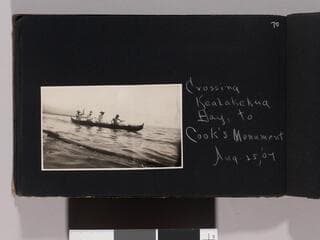 70
Crossing
Kealakekua
Bay, to
Cook's Monument
Aug. 25, '07